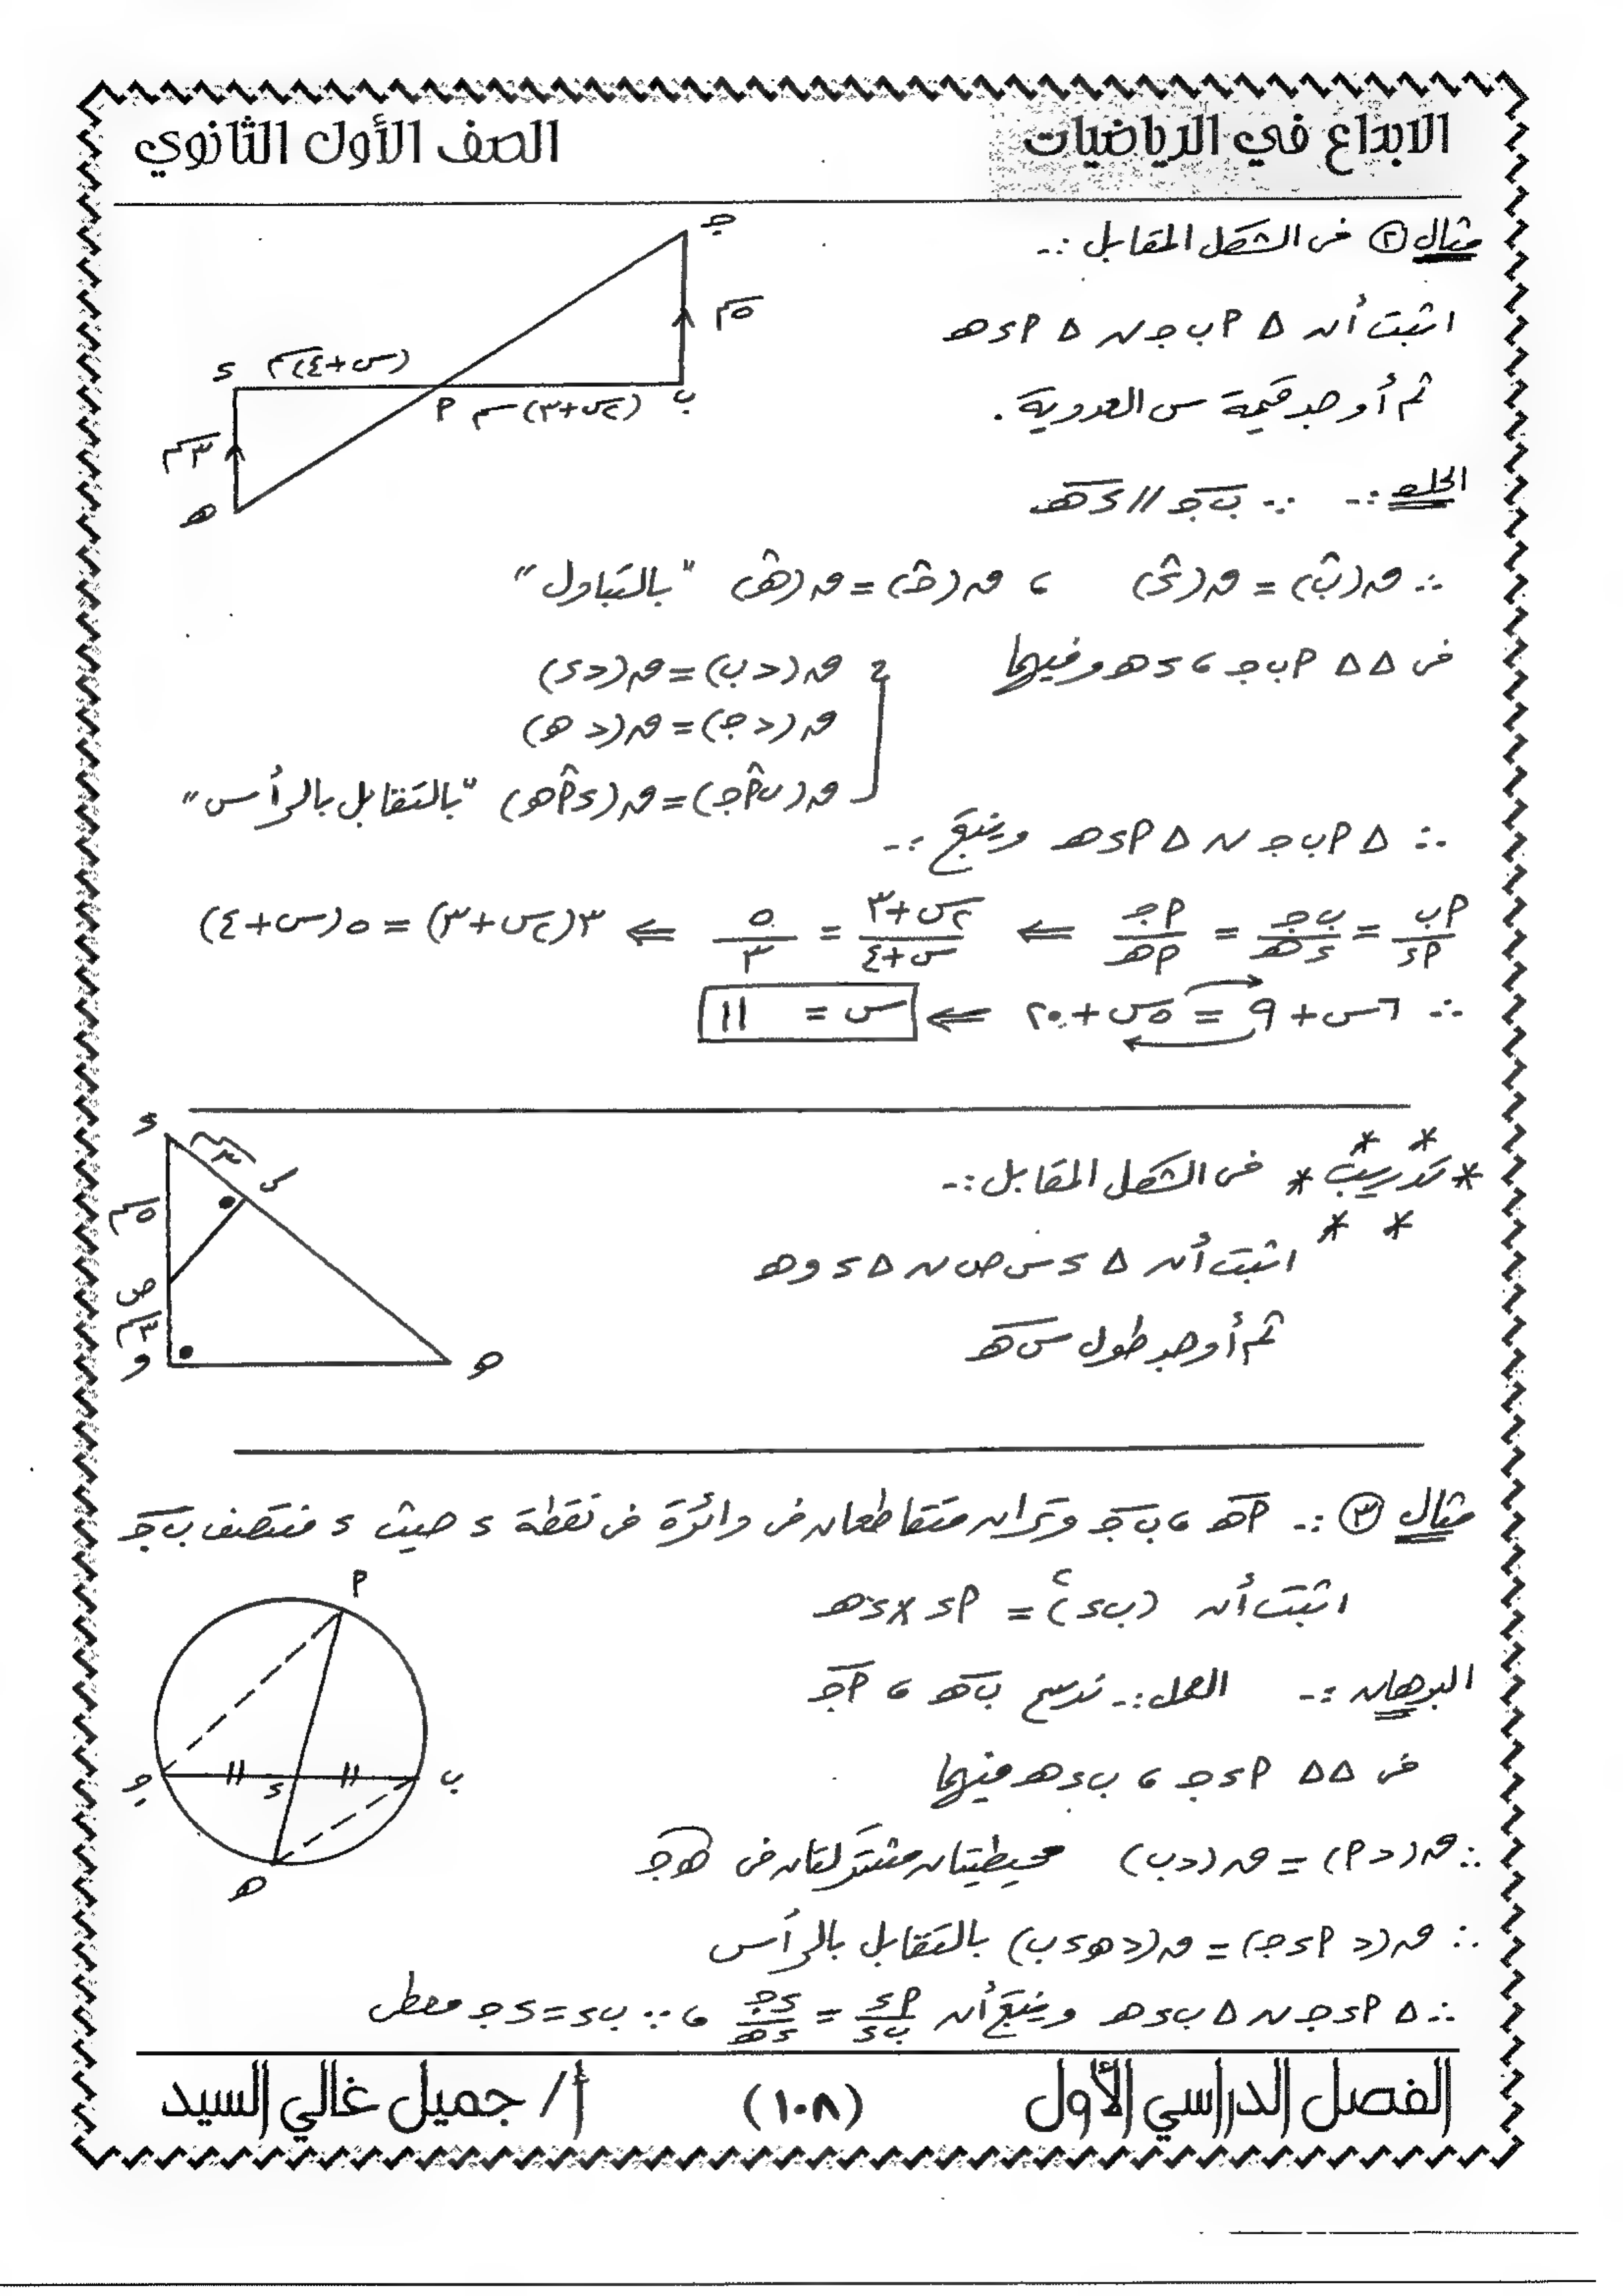 الابداع في الرياضيات
الصف الأول الثانوي
مثال (٢) فى الشكل المقابل :-
اثبت أن Δ أ ب جـ ~ Δ أ د هـ
ثم أوجد قيمة س العددية .
جـ
٥سم
ب
(٢س+٣)سم
أ
(س+٤)سم
د
٣سم
هـ
الحل :- ∵ ب جـ // د هـ
∴ ق(ب̂) = ق(د̂) ، ق(جـ̂) = ق(هـ̂) "بالتبادل"
فى ΔΔ أ ب جـ ، د هـ و فيهما
ق(>ب) = ق(>د)
ق(>جـ) = ق(>هـ)
ق(ب أ̂ جـ) = ق(د أ̂ هـ) "بالتقابل بالرأس"
∴ Δ أ ب جـ ~ Δ أ د هـ وينتج :-
أب/أد = ب جـ/د هـ = أجـ/أهـ ⇐ (٢س+٣)/(س+٤) = ٥/٣ ⇐ ٣(٢س+٣) = ٥(س+٤)
∴ ٦س + ٩ = ٥س + ٢٠ ⇐ س = ١١
* تدريب * فى الشكل المقابل :-
اثبت أن Δ د س ص ~ Δ د و هـ
ثم أوجد طول س هـ
د
٣سم
س
٥سم
ص
٣سم
و
هـ
مثال (٣) :- أهـ ، ب جـ وتران متقاطعان فى دائرة فى نقطة د حيث د منتصف ب جـ
اثبت أن (ب د)٢ = أد × د هـ
البرهان :- العمل :- نرسم ب هـ ، أجـ
فى ΔΔ أ د جـ ، ب د هـ فيهما
∴ ق(>أ) = ق(>ب) محيطيتان مشتركتان فى هـ جـ
∴ ق(> أ د جـ) = ق(> هـ د ب) بالتقابل بالرأس
∴ Δ أ د جـ ~ Δ ب د هـ وينتج أن أد/ب د = د جـ/د هـ ، ∵ ب د = د جـ معطى
أ
جـ
د
ب
هـ
الفصل الدراسي الأول
(١٠٨)
أ/ جميل غالي السيد